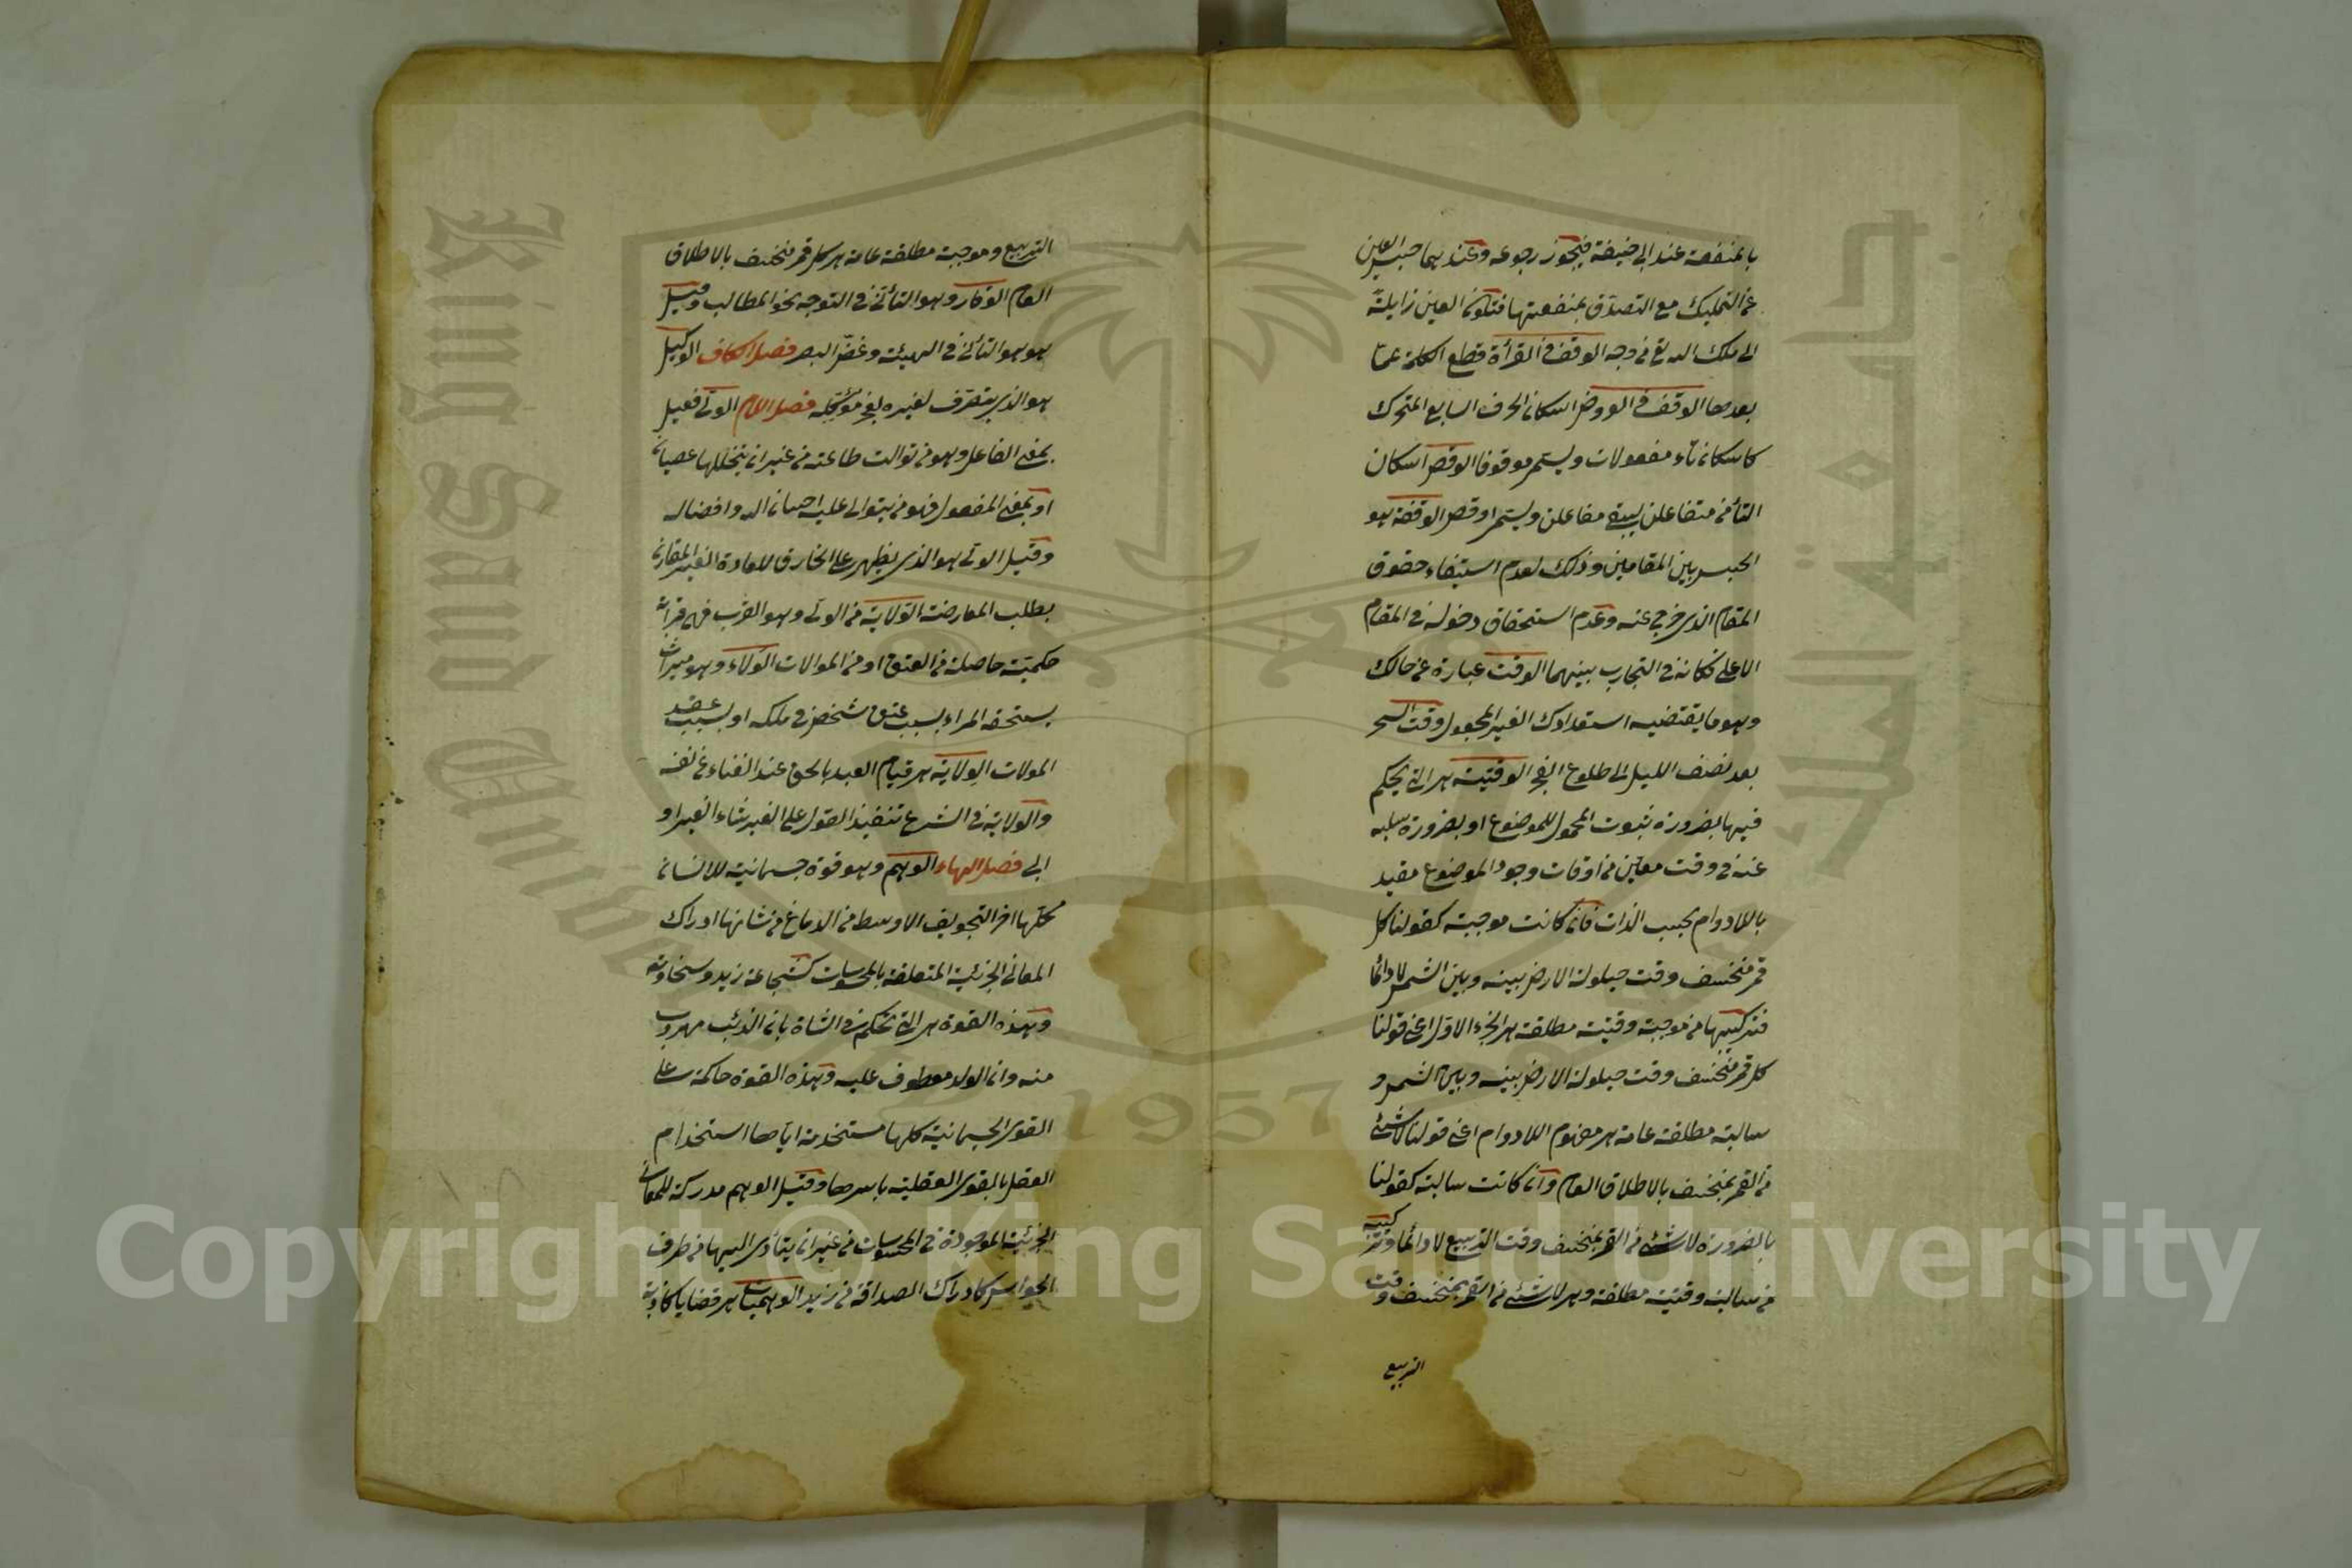 بالمنفعة عند ابى حنيفة فيجوز رجوعه وعندهما حبس العين
عن التمليك مع التصدق بمنفعتها فتكون العين زايلة
الى ملك الله تع من وجه الوقف فى القرأة قطع الكلمة عما
بعدها الوقف فى العروض اسكان الحرف السابع المتحرك
كاسكان تاء مفعولات ويسمى موقوفا الوقص اسكان
التاء من متفاعلن ليبقى مفاعلن ويسمى اوقص الوقفة هو
الحبس بين المقامين وذلك لعدم استيفاء حقوق
المقام الذى خرج عنه وعدم استحقاق دخوله فى المقام
الاعلى فكانه فى التجارب بينهما الوقت عبارة عن حالك
وهو ما يقتضيه استعدادك الغير المجعول وقت السحر
بعد نصف الليل الى طلوع الفجر الوقتية هى التى يحكم
فيها بضرورة ثبوت المحمول للموضوع او بضرورة سلبه
عنه فى وقت معين من اوقات وجود الموضوع مقيد
باللادوام بحسب الذات فان كانت موجبة كقولنا كل
قمر منخسف وقت حيلولة الارض بينه وبين الشمس لا دائما
فتركيبها من موجبة وقتية مطلقة هى الجزء الاول اعنى قولنا
كل قمر منخسف وقت حيلولة الارض بينه وبين الشمس و
سالبة مطلقة عامة هى مفهوم اللادوام اعنى قولنا لا شئ
من القمر بمنخسف بالاطلاق العام وان كانت سالبة كقولنا
بالضرورة لا شئ من القمر بمنخسف وقت التربيع لا دائما وتركيبه
من سالبة وقتية مطلقة وهى لا شئ من القمر بمنخسف وقت
التربيع
التربيع وموجبة مطلقة عامة هى كل قمر منخسف بالاطلاق
العام الوقار وهو التأنى فى التوجه نحو المطالب وقيل
هو هو التأنى فى الهيئة وغض البصر فصل الكاف الوكيل
هو الذى يتصرف لغيره لعجز موكله فصل اللام الولى فعيل
بمعنى الفاعل وهو من توالت طاعته من غير ان يتخللها عصيان
او بمعنى المفعول فهو من يتوالى عليه احسان الله وافضاله
وقيل الولى هو الذى يظهر على الخارق للعادة الغير المقارن
بطلب المعارضة الولاية من الولى وهو القرب فهى قرابة
حكمية حاصلة من العتق او من الموالات الولاء وهو ميراث
يستحقه المراء بسبب عتق شخص فى ملكه او بسبب عقد
المولات الولاية هى قيام العبد بالحق عند الفناء عن نفسه
والولاية فى الشرع تنفيذ القول على الغير شاء الغير او
ابى فصل الهاء الوهم وهو قوة جسمانية للانسان
محلها اخر التجويف الاوسط من الدماغ من شانها ادراك
المعانى الجزئية المتعلقة بالمحسوسات كشجاعة زيد وسخاوته
وهذه القوة هى التى تحكم فى الشاة بان الذئب مهروب
منه وان الولد معطوف عليه وهذه القوة حاكمة على
القوى الجسمانية كلها مستخدمة اياها استخدام
العقل بالقوى العقلية باسرها وقيل الوهم مدركة للمعانى
الجزئية الموجودة فى المحسوسات من غير ان يتأدى اليها من طرف
الحواس كادراك الصداقة من زيد الوهميات هى قضايا كاذبة
King Saud University
جامعة الملك سعود
1957
Copyright © King Saud University